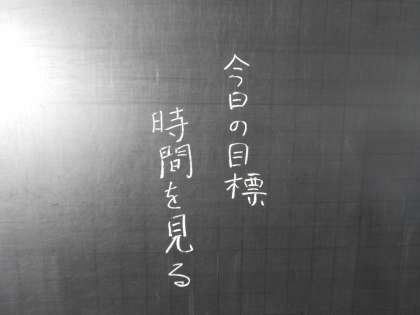 今日の目標
時間を見る